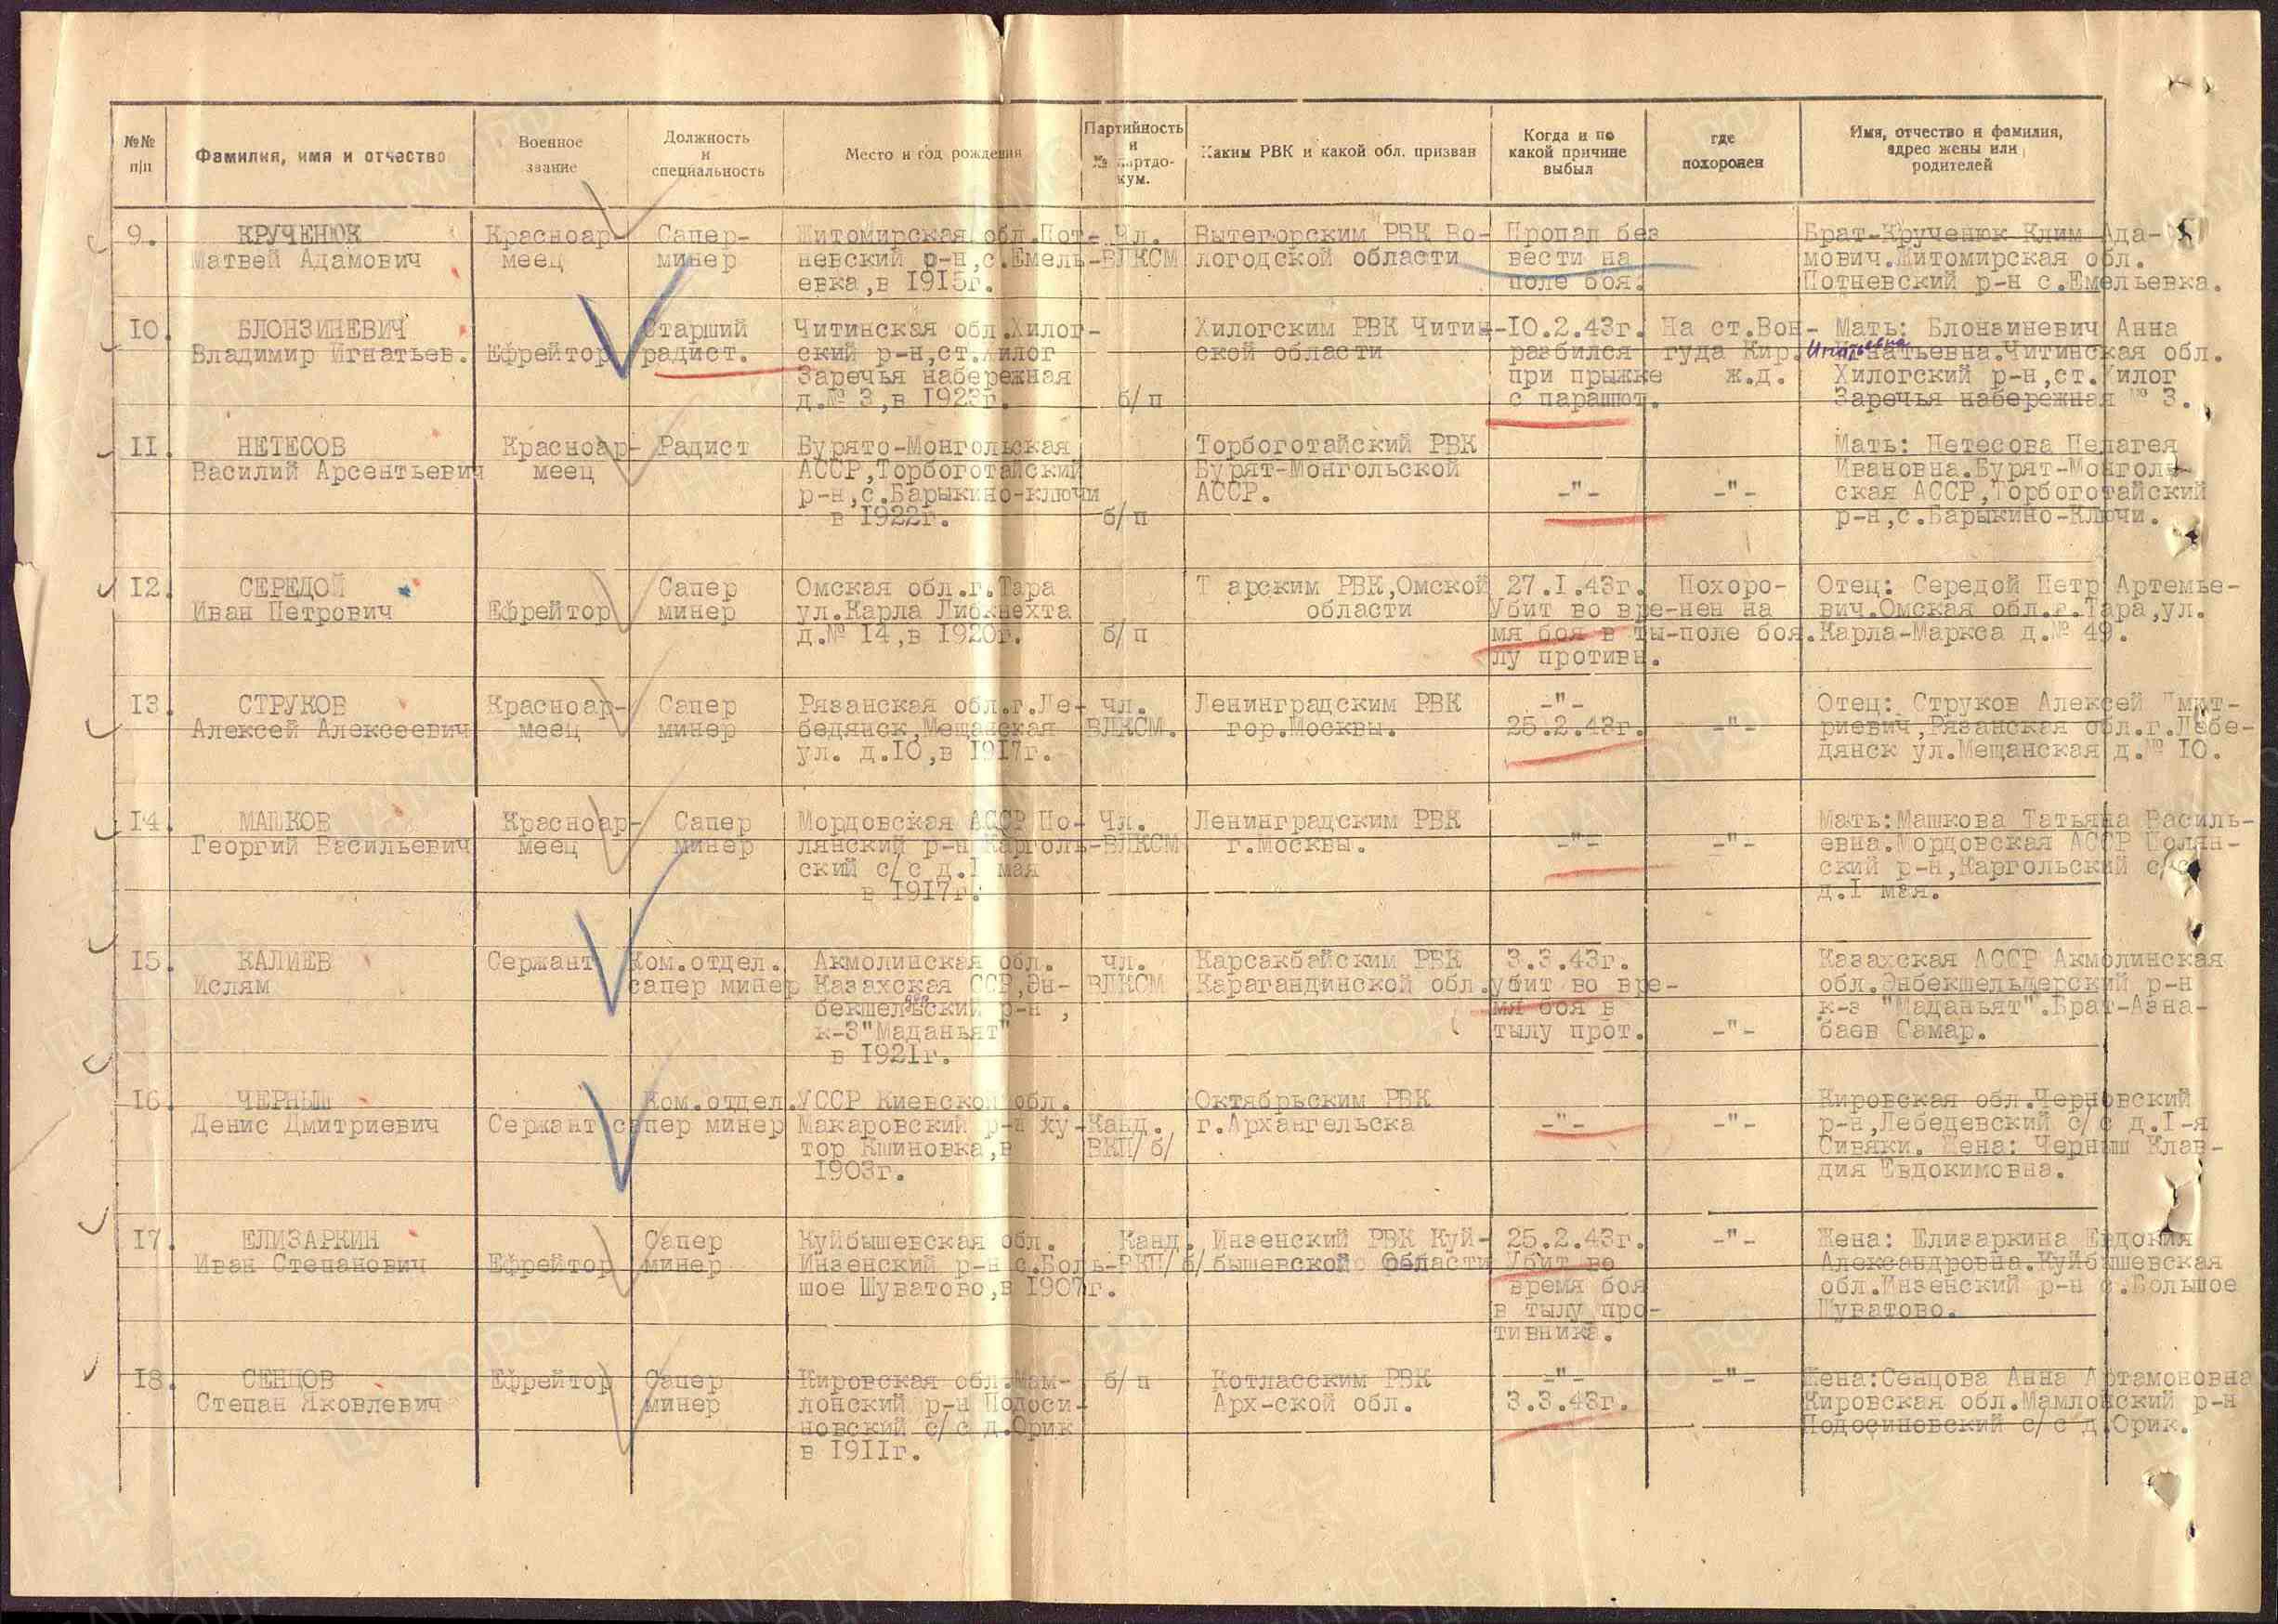 №№ п/п
Фамилия, имя и отчество
Военное звание
Должность и специальность
Место и год рождения
Партийность и № партдокум.
Каким РВК и какой обл. призван
Когда и по какой причине выбыл
где похоронен
Имя, отчество и фамилия, адрес жены или родителей
9. КРУЧЕНЮК Красноар- Сапер- Житомирская обл.Пот- Чл. Вытегорским РВК Во- Пропал без Брат-Крученюк Клим Ада-
Матвей Адамович меец минер невский р-н,с.Емель- ВЛКСМ логодской области вести на мович.Житомирская обл.
евка,в 1915г. поле боя. Потневский р-н с.Емельевка.
10. БЛОНЗИНЕВИЧ Старший Читинская обл.Хилог- Хилогским РВК Читин- 10.2.43г. На ст.Вон- Мать: Блонзиневич Анна
Владимир Игнатьев. Ефрейтор радист. ский р-н,ст.Хилог ской области разбился гуда Кир. Игнатьевна.Читинская обл.
Заречья набережная при прыжке ж.д. Хилогский р-н,ст.Хилог
д.№ 3,в 1923г. б/п с парашют. Заречья набережная № 3.
11. НЕТЕСОВ Красноар- Радист Бурято-Монгольская Торбоготайский РВК Мать: Нетесова Пелагея
Василий Арсентьевич меец АССР,Торбоготайский Бурят-Монгольской Ивановна.Бурят-Монголь-
р-н,с.Барыкино-ключи АССР. -"- -"- ская АССР,Торбоготайский
в 1922г. б/п р-н,с.Барыкино-Ключи.
12. СЕРЕДОЙ Сапер Омская обл.г.Тара Т арским РВК,Омской 27.I.43г. Похоро- Отец: Середой Петр Артемье-
Иван Петрович Ефрейтор минер ул.Карла Либкнехта области Убит во вре- нен на вич.Омская обл.г.Тара,ул.
д.№ 14,в 1920г. б/п мя боя в ты- поле боя. Карла-Маркса д.№ 49.
лу противн.
13. СТРУКОВ Красноар- Сапер Рязанская обл.г.Ле- чл. Ленинградским РВК -"- Отец: Струков Алексей Дмит-
Алексей Алексеевич меец минер бедянск,Мещанская ВЛКСМ. гор.Москвы. 25.2.43г. -"- риевич,Рязанская обл.г.Лебе-
ул. д.10,в 1917г. дянск ул.Мещанская д.№ 10.
14. МАШКОВ Красноар- Сапер Мордовская АССР По- Чл. Ленинградским РВК Мать:Машкова Татьяна Василь-
Георгий Васильевич меец минер лянский р-н Карголь- ВЛКСМ г.Москвы. -"- -"- евна.Мордовская АССР Полян-
ский с/с д.I мая ский р-н,Каргольский с/с
в 1917г. д.I мая.
15. КАЛИЕВ Сержант Ком.отдел. Акмолинская обл. чл. Карсакбайским РВК 3.3.43г. Казахская АССР Акмолинская
Ислям сапер минер Казахская ССР,Эн- ВЛКСМ Карагандинской обл. убит во вре- обл.Энбекшельдерский р-н
бекшельский р-н, мя боя в к-з "Маданьят".Брат-Азна-
к-З"Маданьят" тылу прот. -"- баев Самар.
в 1921г.
16. ЧЕРНЫШ Ком.отдел. УССР Киевской обл. Октябрьским РВК Кировская обл.Черновский
Денис Дмитриевич Сержант сапер минер Макаровский р-н ху- Канд. г.Архангельска -"- -"- р-н,Лебедевский с/с д.I-я
тор Кшиновка,в ВКП/б/ Сивяки. Жена: Черныш Клав-
1903г. дия Евдокимовна.
17. ЕЛИЗАРКИН Сапер Куйбышевская обл. Канд. Инзенский РВК Куй- 25.2.43г. -"- Жена: Елизаркина Евдокия
Иван Степанович Ефрейтор минер Инзенский р-н с.Боль- ВКП/б/ бышевской области Убит во Александровна.Куйбышевская
шое Шуватово,в 1907г. время боя обл.Инзенский р-н с.Большое
в тылу про- Шуватово.
тивника.
18. СЕНЦОВ Ефрейтор Сапер Кировская обл.Мам- б/п Котласским РВК -"- -"- Жена:Сенцова Анна Артамоновна
Степан Яковлевич минер лонский р-н Подоси- Арх-ской обл. 3.3.43г. Кировская обл.Мамлонский р-н
новский с/с д.Орик Подосиновский с/с д.Орик.
в 1911г.